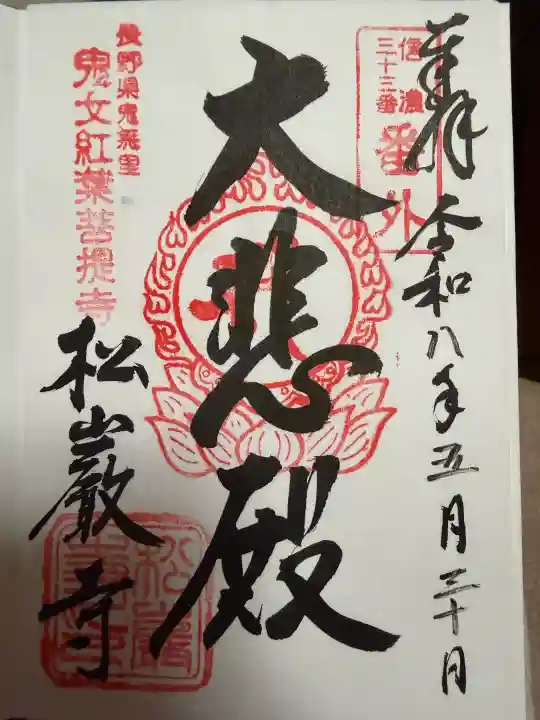 奉拝 令和八年五月三十日
信濃
三十三番
番外
大悲殿
長野県鬼無里
鬼女紅葉菩提寺
松巌寺
松巌
寺